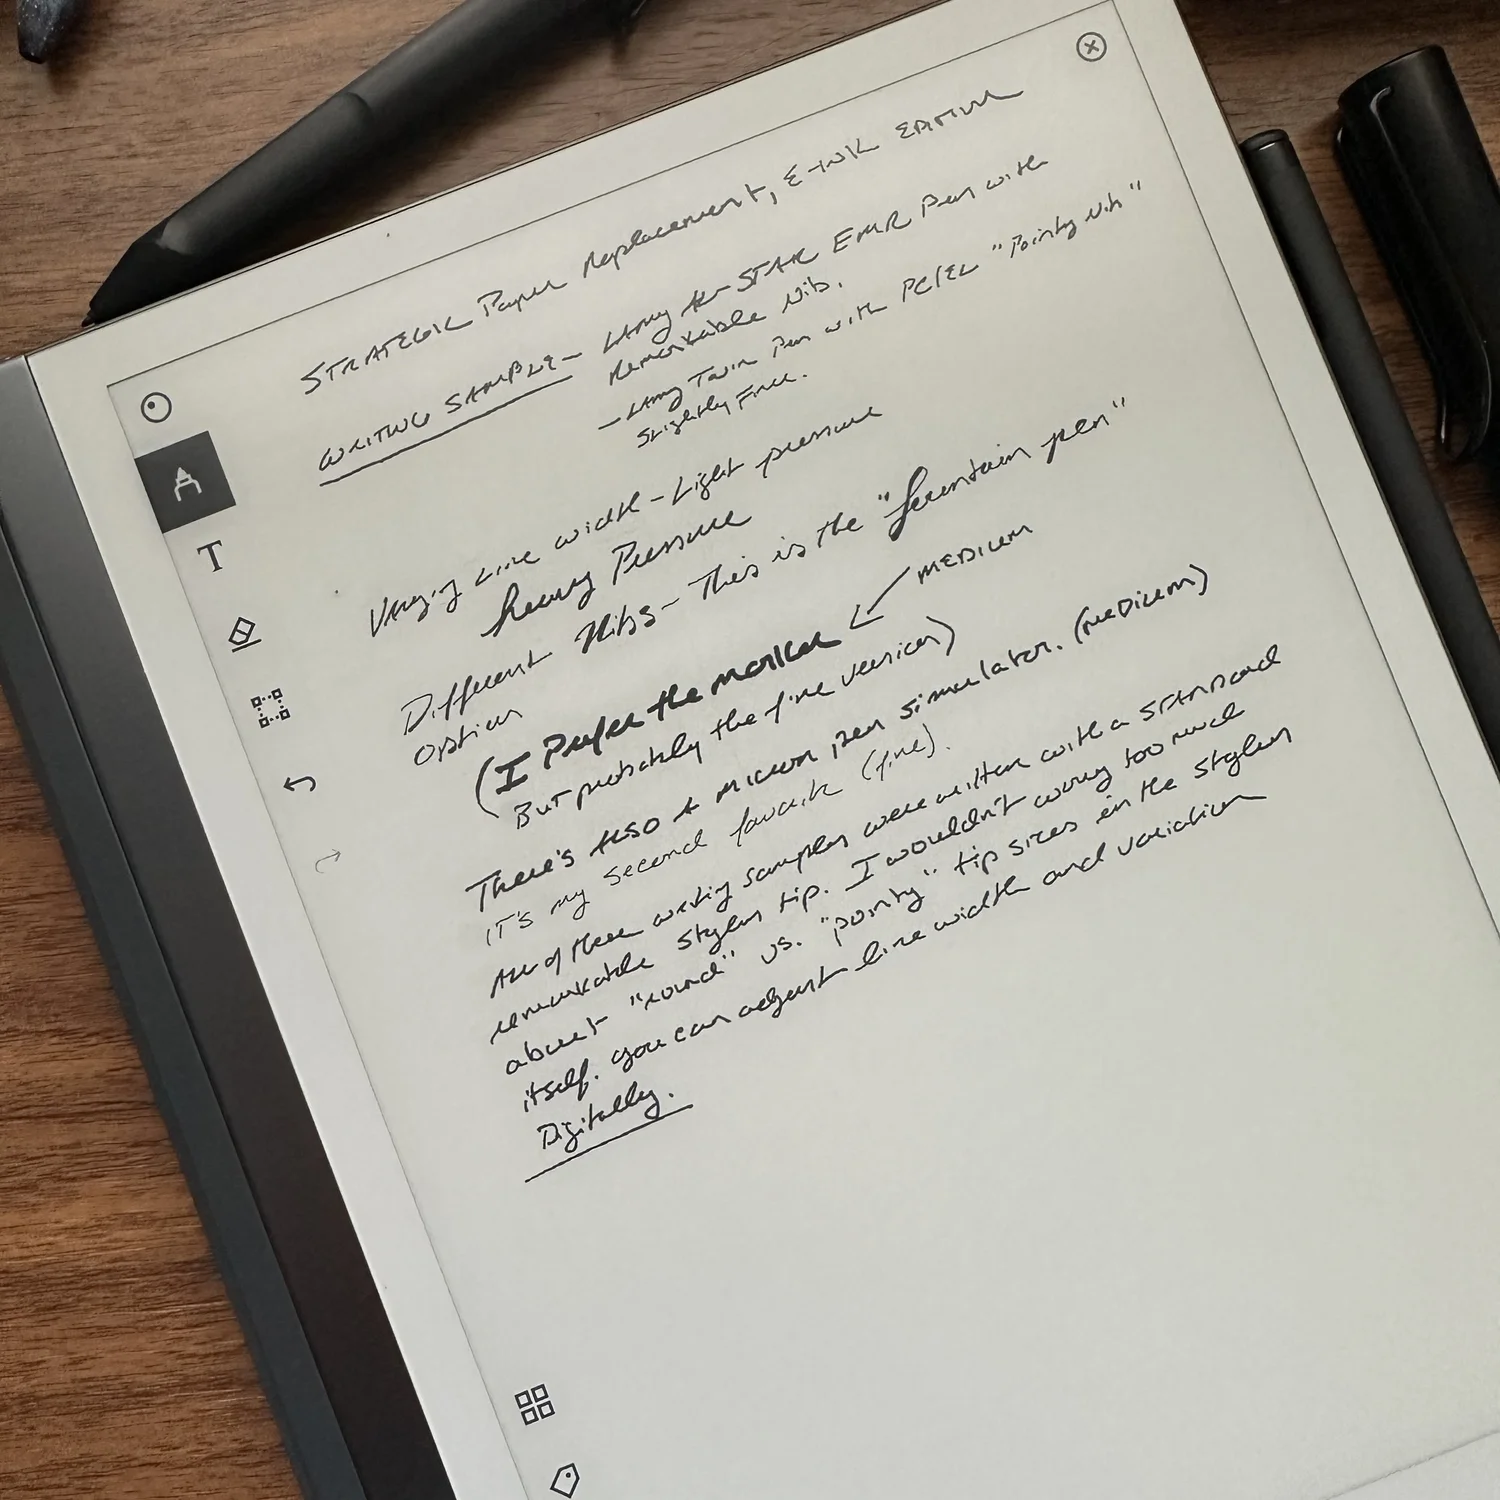 STRATEGIC Paper Replacement, E-INK EDITION
WRITING SAMPLE - LAMY AL-STAR EMR Pen with
Remarkable Nib.
- LAMY Twin Pen with PC/EL "Pointy Nib"
Slightly Finer.
Varying Line width - Light pressure
heavy Pressure
Different Nibs - This is the "fountain pen"
option
MEDIUM
(I Prefer the marker
But probably the fine version)
There's also a micron pen simulator. (medium)
IT's my second favorite (fine).
All of these writing samples were written with a standard
remarkable stylus tip. I wouldn't worry too much
about "round" vs. "pointy" tip sizes in the stylus
itself. you can adjust line width and variation
Digitally.
T